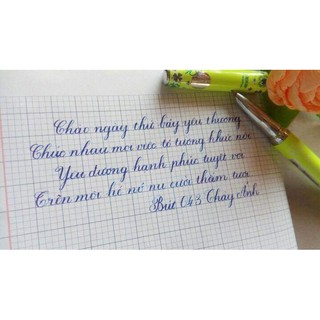 Chào ngày thứ bảy yêu thương
Chúc nhau mọi việc tỏ tường khúc nôi
Yêu đương hạnh phúc tuyệt vời
Trên môi hé nở nụ cười thắm tươi
Bút 043 Thầy Ánh